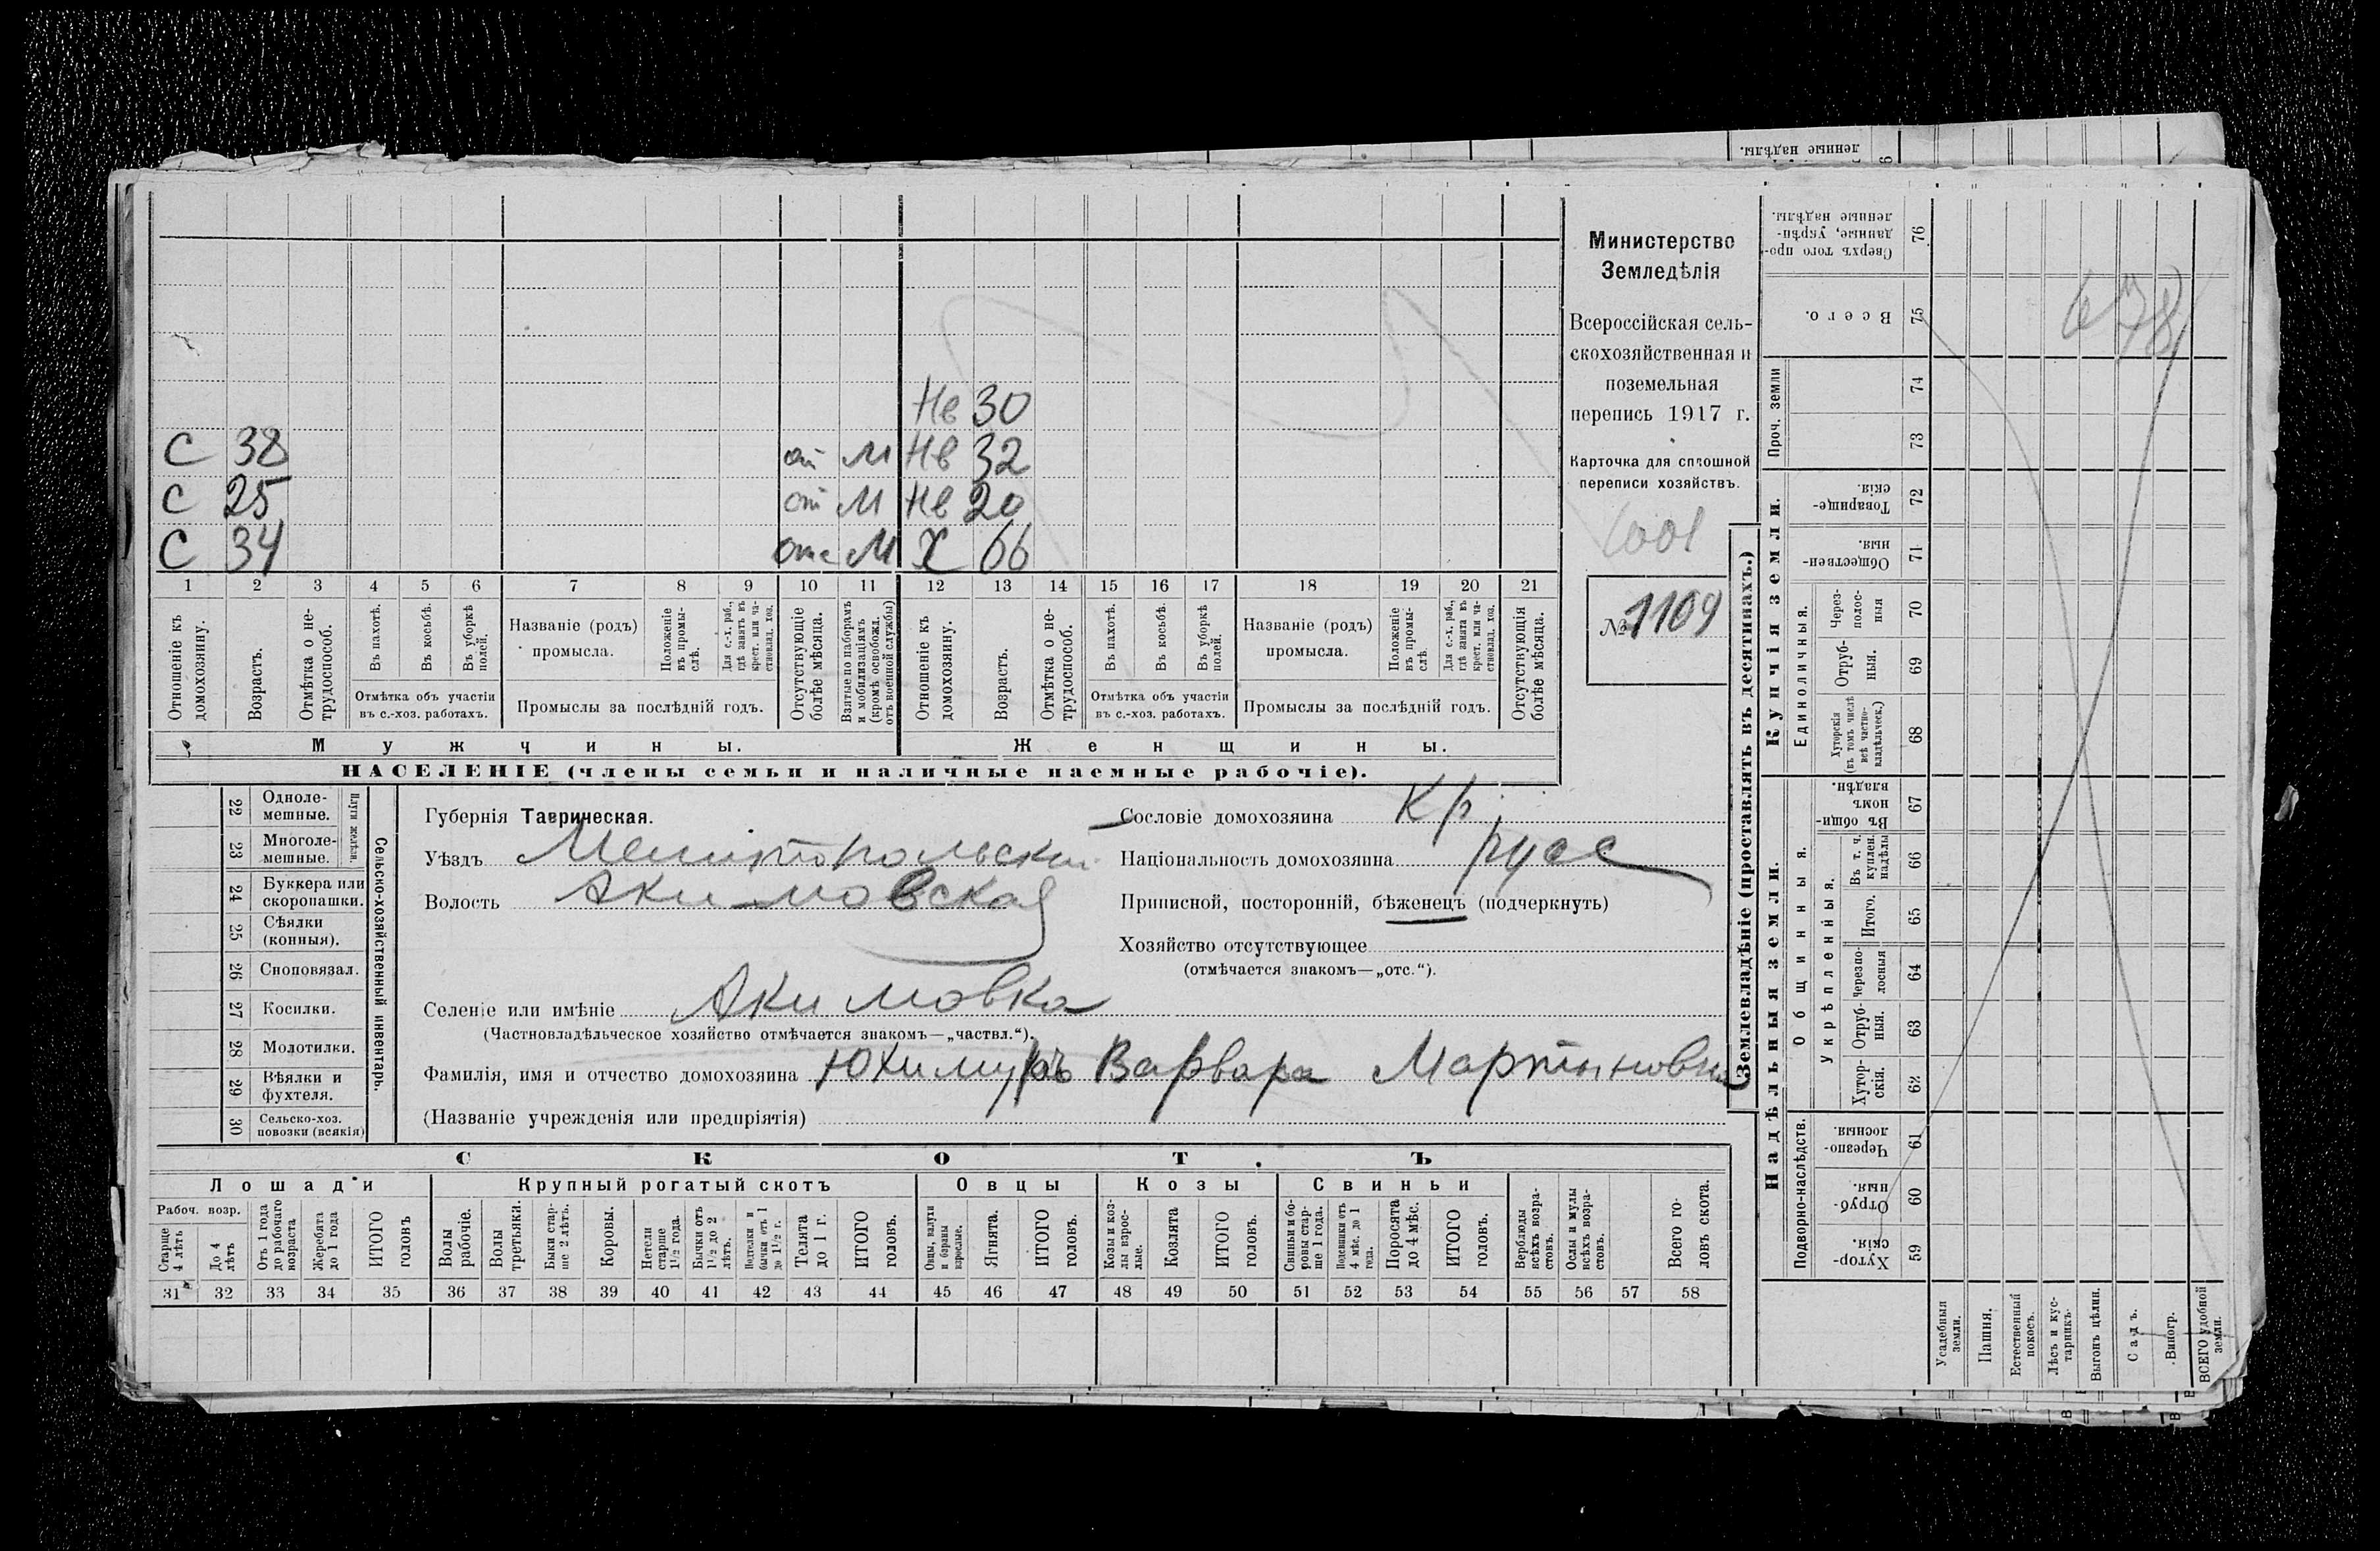 денные надѣлы.
6
Нв 30
С 38 от М Нв 32
С 25 от М Нв 20
С 34 отс М Х 66
1 2 3 4 5 6 7 8 9 10 11 12 13 14 15 16 17 18 19 20 21
Отношеніе къ домохозяину.
Возрастъ.
Отмѣтка о не-
трудоспособ.
Въ пахотѣ.
Въ косьбѣ.
Въ уборкѣ
полей.
Отмѣтка объ участіи
въ с.-хоз. работахъ.
Названіе (родъ)
промысла.
Положеніе
въ промы-
слѣ.
Для с.-х. раб.,
гдѣ занятъ въ
крест. или ча-
стновлад. хоз.
Промыслы за послѣдній годъ.
Отсутствующіе
болѣе мѣсяца.
Взятые по наборамъ
и мобилизаціямъ
(кромѣ освобожд.
отъ военной службы)
Отношеніе къ
домохозяину.
Возрастъ.
Отмѣтка о не-
трудоспособ.
Въ пахотѣ.
Въ косьбѣ.
Въ уборкѣ
полей.
Отмѣтка объ участіи
въ с.-хоз. работахъ.
Названіе (родъ)
промысла.
Положеніе
въ промы-
слѣ.
Для с.-х. раб.,
гдѣ занята въ
крест. или ча-
стновлад. хоз.
Промыслы за послѣдній годъ.
Отсутствующія
болѣе мѣсяца.
Мужчины.
Женщины.
НАСЕЛЕНІЕ (члены семьи и наличные наемные рабочіе).
Министерство
Земледѣлія
Всероссійская сель-
скохозяйственная и
поземельная
перепись 1917 г.
Карточка для сплошной
переписи хозяйствъ.
1001
№ 1109
22 Одноле-
мешные.
23 Многоле-
мешные.
Плуги желѣзн.
24 Буккера или
скоропашки.
25 Сѣялки
(конныя).
26 Сноповязал.
27 Косилки.
28 Молотилки.
29 Вѣялки и
фухтеля.
30 Сельско-хоз.
повозки (всякія)
Сельско-хозяйственный инвентарь.
Губернія Таврическая.
Уѣздъ Мелитопольскій
Волость Акимовская
Селеніе или имѣніе Акимовка
(Частновладѣльческое хозяйство отмѣчается знакомъ—„частвл.“).
Фамилія, имя и отчество домохозяина Варвара Мартыновна
(Названіе учрежденія или предпріятія)
Сословіе домохозяина Кр.
Національность домохозяина русс
Приписной, посторонній, бѣженецъ (подчеркнуть)
Хозяйство отсутствующее
(отмѣчается знакомъ—„отс.“).
СКОТЪ.
Лошади
Крупный рогатый скотъ
Овцы
Козы
Свиньи
Рабоч. возр.
Старше
4 лѣтъ
До 4
лѣтъ
Отъ 1 года
до рабочаго
возраста
Жеребята
до 1 года
ИТОГО
головъ
Волы
рабочіе.
Волы
третьяки.
Быки стар-
ше 2 лѣтъ.
Коровы.
Нетели
старше
1½ года.
Бычки отъ
1½ до 2
лѣтъ.
Подтелки и
бычки отъ 1
до 1½ г.
Телята
до 1 г.
ИТОГО
головъ.
Овцы, валухи
и бараны
взрослые.
Ягнята.
ИТОГО
головъ.
Козы и коз-
лы взрос-
лые.
Козлята
ИТОГО
головъ.
Свиньи и бо-
ровы стар-
ше 1 года.
Подсвинки отъ
4 мѣс. до 1
года.
Поросята
до 4 мѣс.
ИТОГО
головъ.
Верблюды
всѣхъ возра-
стовъ.
Ослы и мулы
всѣхъ возра-
стовъ.
Всего го-
ловъ скота.
31 32 33 34 35 36 37 38 39 40 41 42 43 44 45 46 47 48 49 50 51 52 53 54 55 56 57 58
Землевладѣніе (проставлять въ десятинахъ.)
Купчія земли.
Надѣльныя земли.
Сверхъ того про-
данные, укрѣп-
ленные надѣлы.
76
Всего.
75
678
Проч. земли
74
73
Товарище-
скія.
72
Обществен-
ныя.
71
Единоличныя.
Через-
полос-
ныя
70
Отруб-
ныя.
69
Хуторскія
(въ томъ числѣ
всѣ частно-
владѣльческ.)
68
Общинныя.
Въ общин-
номъ
владѣн.
67
Укрѣпленныя.
Въ т. ч.
куплен.
надѣлы
66
Итого.
65
Черезпо-
лосныя
64
Отруб-
ныя.
63
Хутор-
скія.
62
Подворно-наслѣдств.
Черезпо-
лосныя.
61
Отруб-
ныя.
60
Хутор-
скія.
59
Усадебныя
земли.
Пашня.
Естественный
покосъ.
Лѣсъ и кус-
тарникъ.
Выгонъ цѣлин.
Садъ.
Виногр.
ВСЕГО удобной
земли.